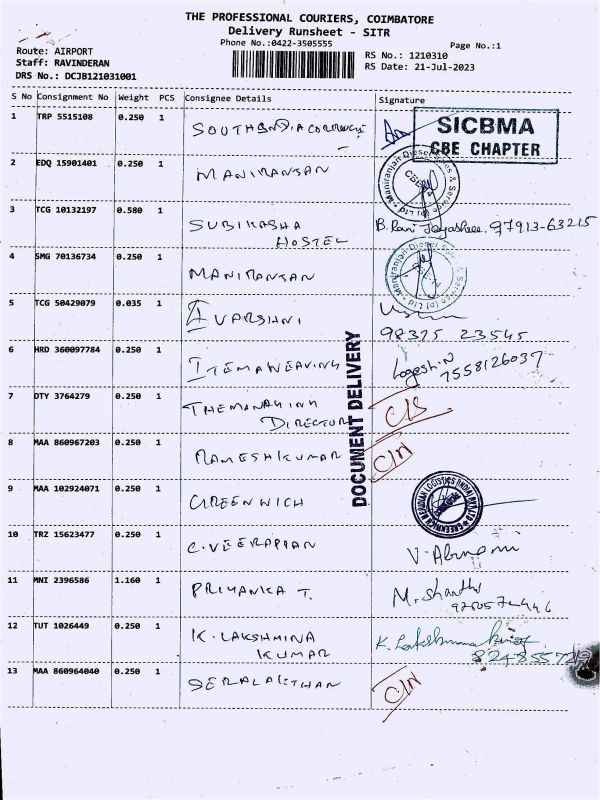 THE PROFESSIONAL COURIERS, COIMBATORE
Delivery Runsheet - SITR
Phone No.:0422-3505555
Page No.:1
Route: AIRPORT
Staff: RAVINDERAN
DRS No.: DCJB121031001
RS No.: 1210310
RS Date: 21-Jul-2023
S No Consignment No Weight PCS Consignee Details Signature
1 TRP 5515108 0.250 1
SICBMA
CBE CHAPTER
2 EDQ 15901401 0.250 1 MANIRANJAN
3 TCG 10132197 0.580 1 SUBIKASHA
HOSTEL
97913-63215
4 SMG 70136734 0.250 1 MANIRANJAN
5 TCG 50429079 0.035 1 VARSHNI
98375 23545
6 HRD 360097784 0.250 1 ITEMAWEAVING Logesh.N
7558126037
DOCUMENT DELIVERY
7 DTY 3764279 0.250 1 THEMANAGING
DIRECTOR
8 MAA 860967203 0.250 1 RAMESHKUMAR C/N
9 MAA 102924071 0.250 1 GREENWICH
10 TRZ 15623477 0.250 1 C.VEERAPPAN
11 MNI 2396586 1.160 1 PRIYANKA T. M. Shanthi
12 TUT 1026449 0.250 1 K. LAKSHMINA
KUMAR
13 MAA 860964040 0.250 1 C/N